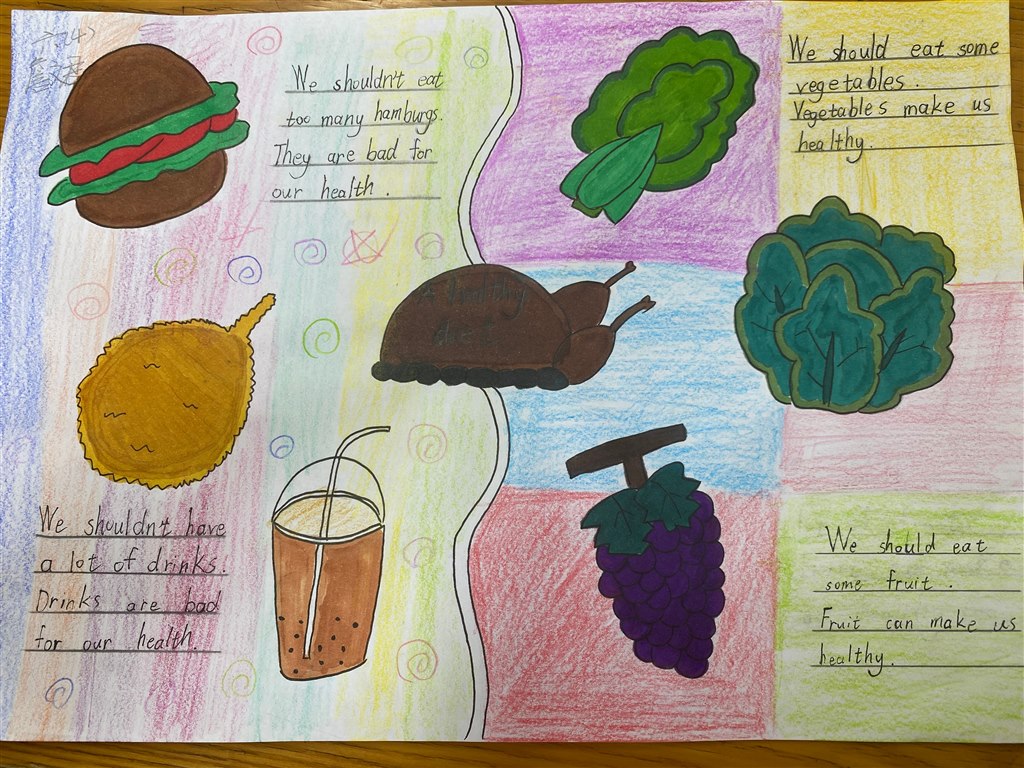 We shouldn't eat
too many hamburgs.
They are bad for
our health.
We should eat some
vegetables.
Vegetables make us
healthy.
A healthy
diet
We shouldn't have
a lot of drinks.
Drinks are bad
for our health.
We should eat
some fruit.
Fruit can make us
healthy.